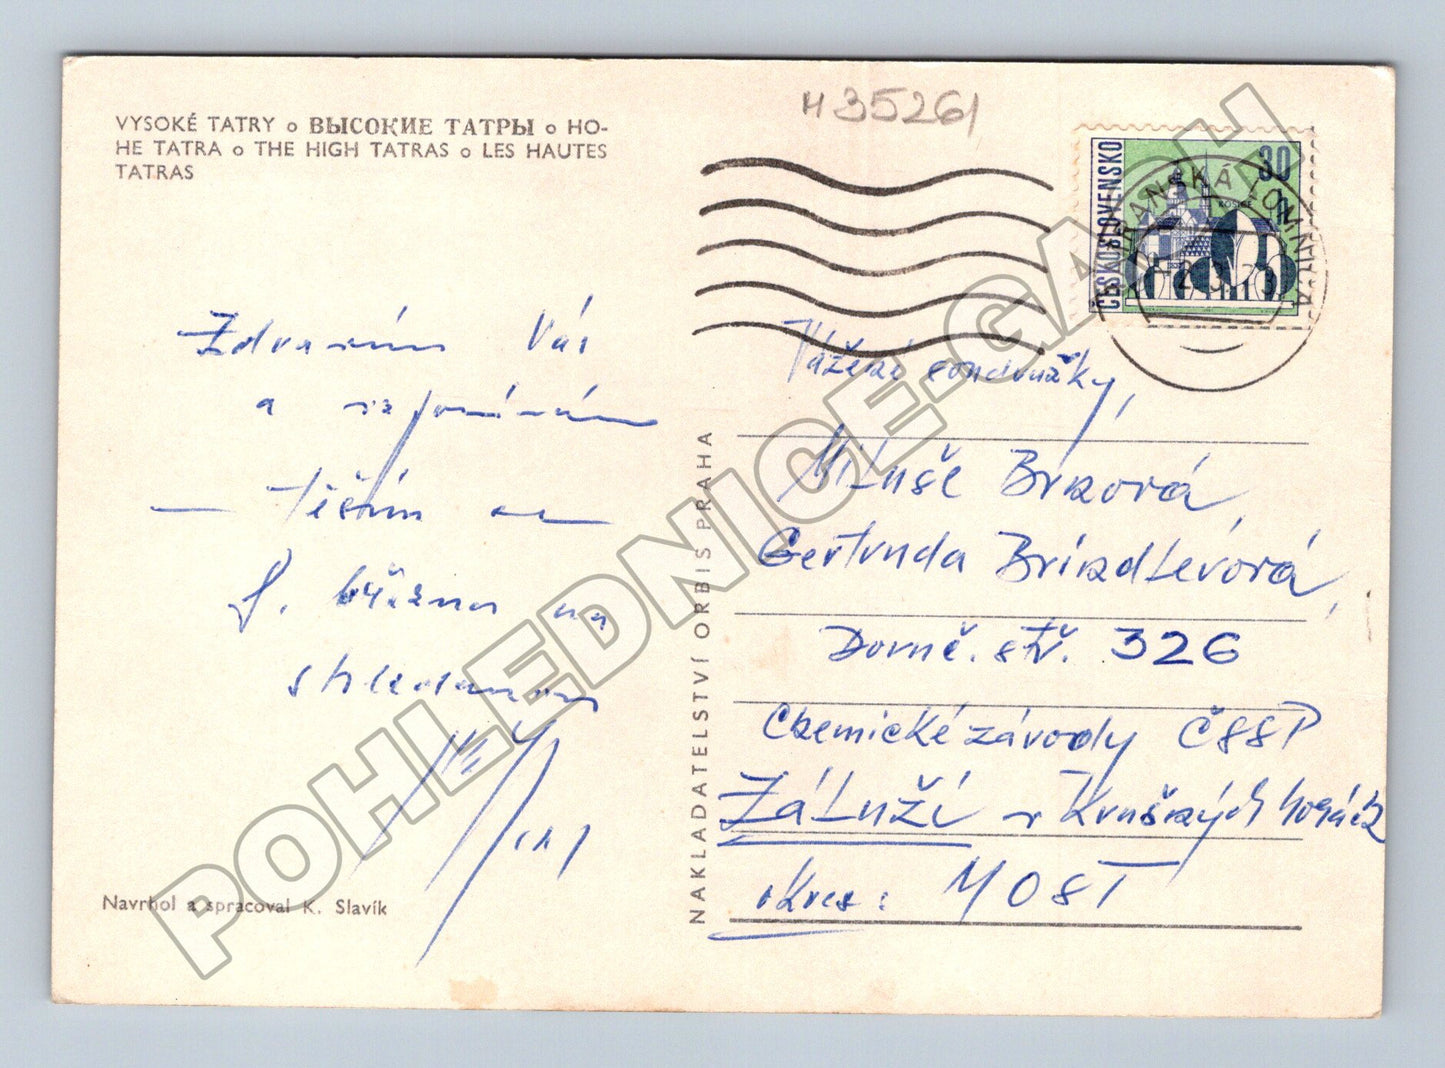 VYSOKÉ TATRY o ВЫСОКИЕ ТАТРЫ o HO-
HE TATRA o THE HIGH TATRAS o LES HAUTES
TATRAS
H 35261
ČESKOSLOVENSKO
30 h
KOŠICE
TATRANSKÁ LOMNICA
Zdravím Vás
a vzpomínám
– těším se –
8. března na
shledanou
Vážené soudružky,
Miluše Brixová,
Gertruda Brindlerová,
Domě. stř. 326
Chemické závody ČSSP
ZáLUŽí v Krušných horách
okres: MOST
NAKLADATELSTVÍ ORBIS PRAHA
Navrhol a spracoval K. Slavík
POHLEDNICE.GASH